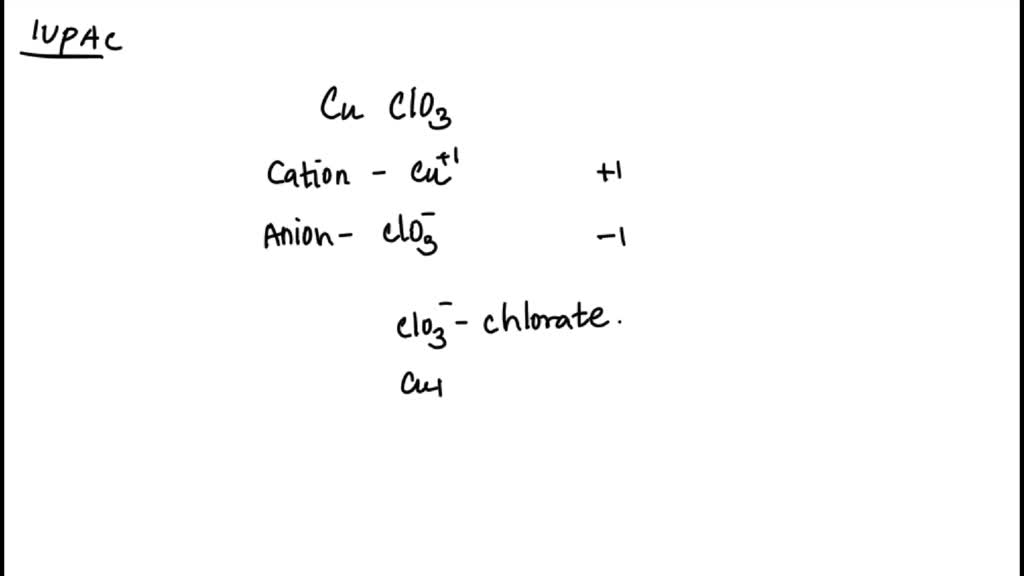 IUPAC
Cu ClO₃
Cation - Cu⁺¹ +1
Anion - ClO₃⁻ -1
ClO₃⁻ - chlorate.
Cu